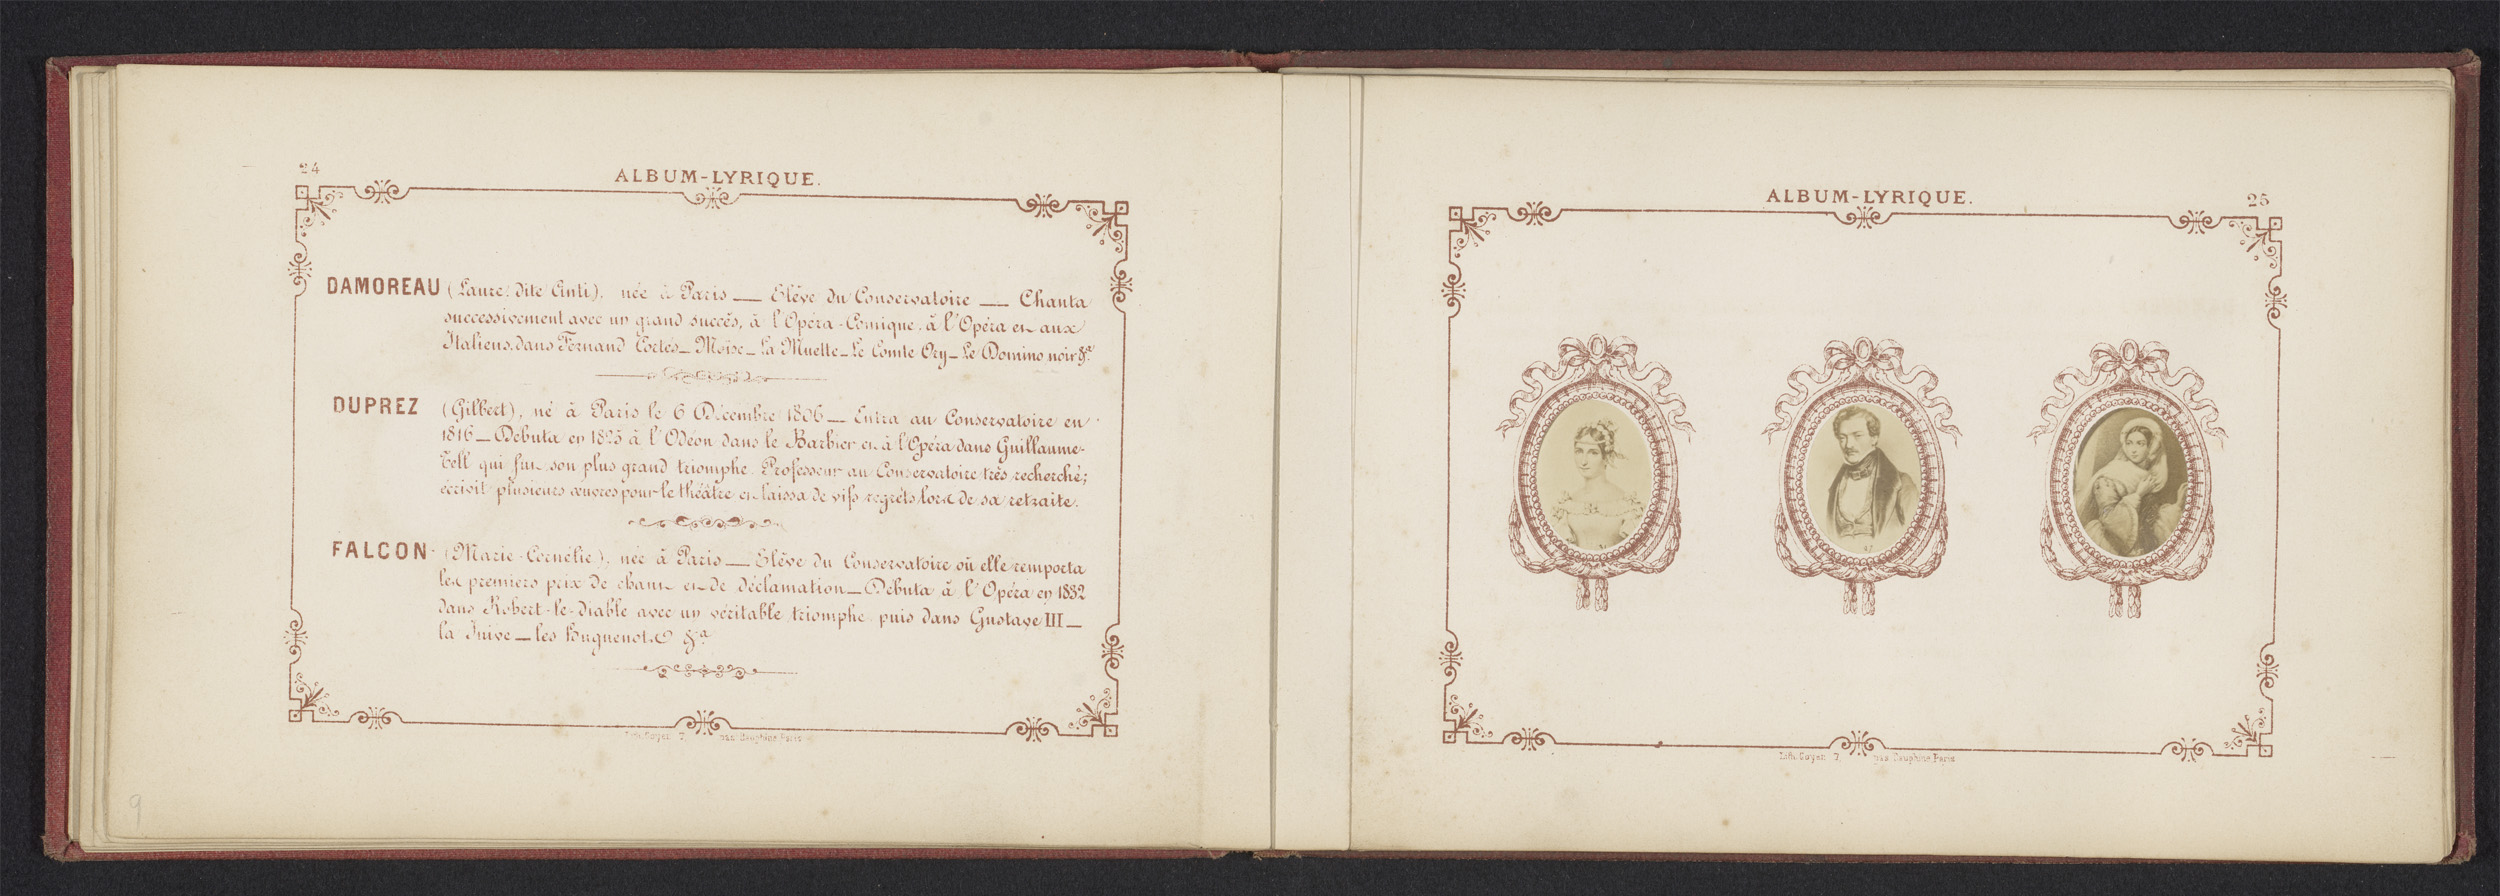 24
ALBUM-LYRIQUE.
DAMOREAU (Laure, dite Cinti), née à Paris — Elève du Conservatoire — Chanta
successivement avec un grand succès, à l'Opéra-Comique, à l'Opéra et aux
Italiens, dans Fernand Cortès — Moïse — La Muette — Le Comte Ory — Le Domino noir &a.
DUPREZ (Gilbert), né à Paris le 6 Décembre 1806 — Entra au Conservatoire en
1816 — Débuta en 1825 à l'Odéon dans le Barbier et à l'Opéra dans Guillaume-
Tell qui fut son plus grand triomphe. Professeur au Conservatoire très recherché;
écrivit plusieurs œuvres pour le théâtre et laissa de vifs regrets lors de sa retraite.
FALCON (Marie-Cornélie), née à Paris — Elève du Conservatoire où elle remporta
les premiers prix de chant et de déclamation — Débuta à l'Opéra en 1832
dans Robert-le-Diable avec un véritable triomphe puis dans Gustave III —
la Juive — les Huguenots &a
Lith. Goyer 7, pas. Dauphine Paris
9
ALBUM-LYRIQUE.
25
Lith. Goyer 7, pas. Dauphine Paris